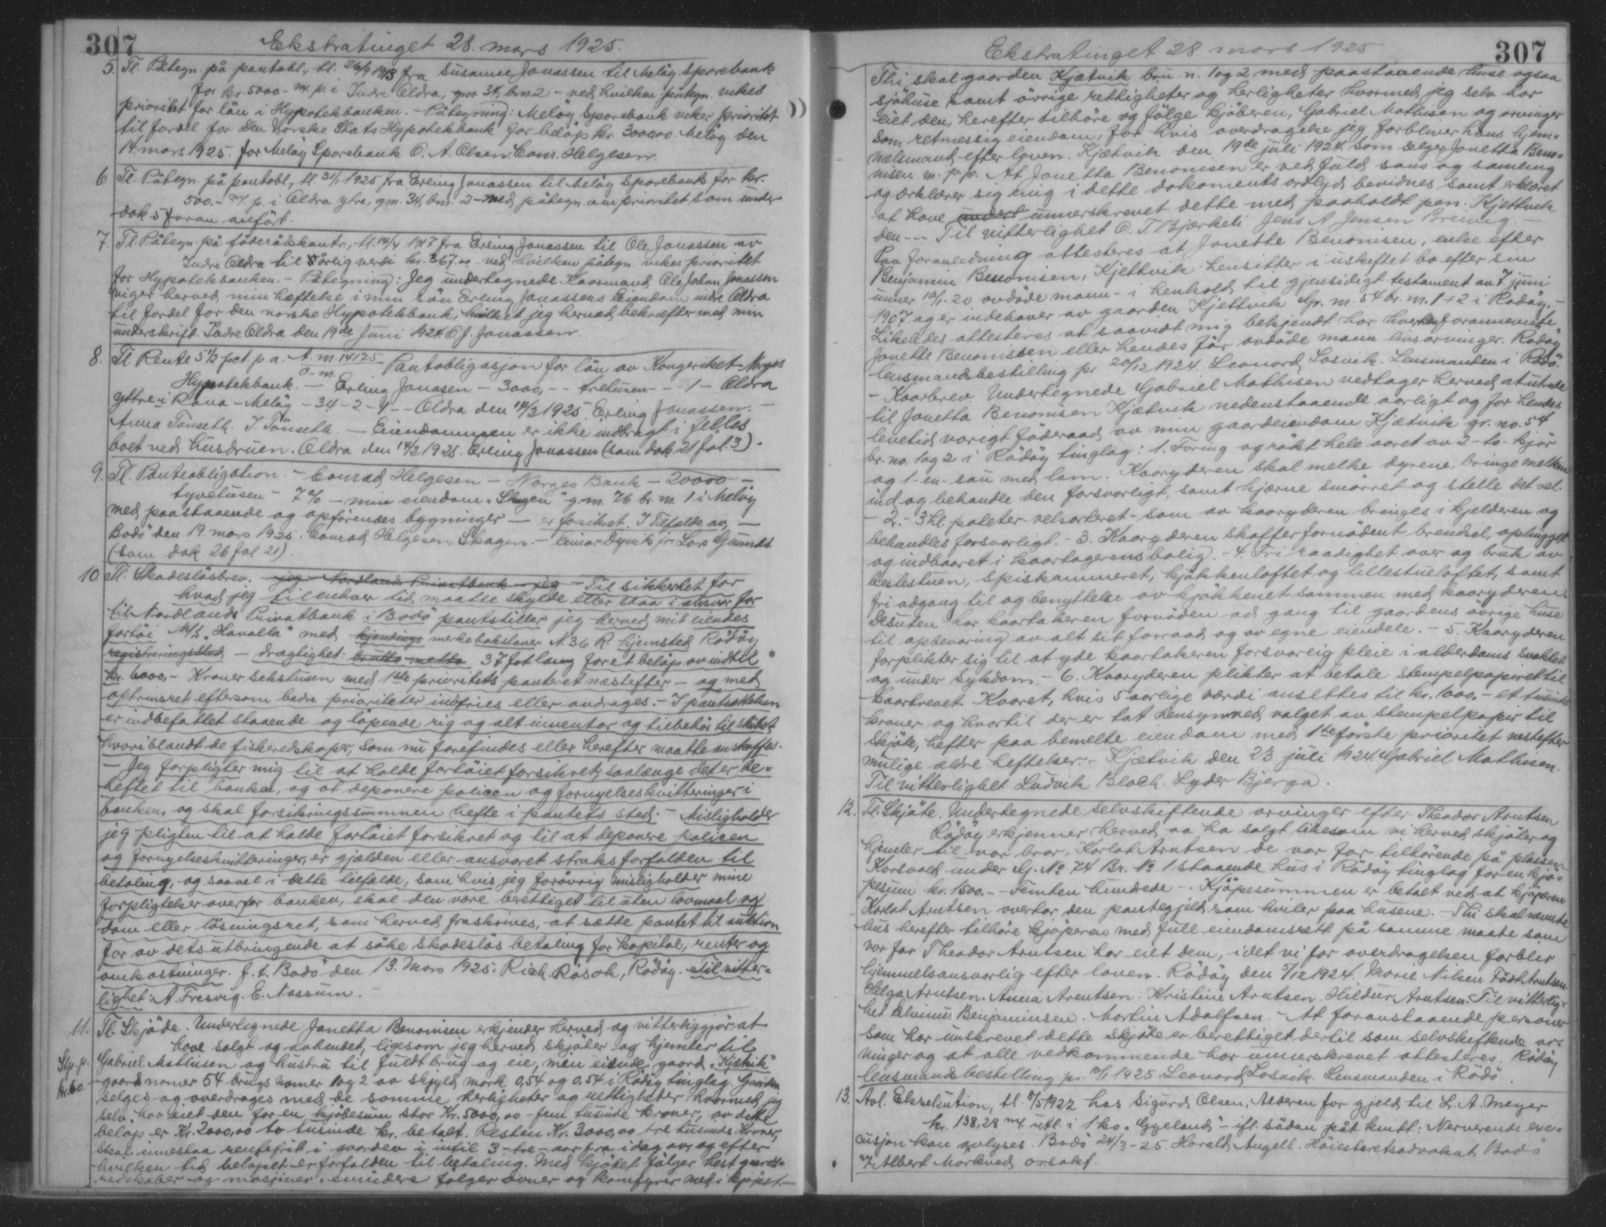 307
Ekstratinget 28. mars 1925.
5. Tl. Påtegn på pantobl., tl. 26/9 1918 fra Susanne Jonassen til Meløy Sparebank
for kr. 5000.- m. p. i Indre Aldra, gm. 34, bm 2 - ved hvilken påtegn. vikes
prioritet for lån i Hypotekbanken. - Påtegning: Meløy Sparebank viker prioritet
til fordel for Den Norske Stats Hypotekbank for beløp kr. 3000.00 Meløy den
14. mars 1925 for Meløy Sparebank O. A. Olsen. Conr. Helgesen.
6. Tl. Påtegn på pantobl., tl. 31/1 1925 fra Erling Jonassen til Meløy Sparebank for kr.
500.- m. p. i Aldra ytre, gm. 34, bm. 2 - med påtegn. om prioritet som under
dok 5 foran anført.
7. Tl. Påtegn på føderådskontr., tl. 14/4 1917 fra Erling Jonassen til Ole Jonassen av
Indre Aldra til 5 årlig verdi kr. 367.00 ved hvilken påtegn. vikes prioritet
for Hypotekbanken. Påtegning: Jeg undertegnede Kaarmand Ole Johan Jonassen
viger herved min hæftelse i min søn Erling Jonassens Eiendom indre Aldra
til fordel for den norske Hypotekbank, hvilket jeg herved bekræfter med min
underskrift. Indre Aldra den 19de Juni 1924 O. J. Jonassen.
8. Tl. Rente 5 1/2 pct p a. A. m 14125 Pantobligasjon for lån av Kongeriket Norges
Hypotekbank. - Erling Jonasen - 3000,- - tretusen - - 1 - Aldra
yttre i Rana - Meløy - 34 - 2 - 4 - - Aldra den 14/3 1925 Erling Jonassen. -
Anna Tønseth. I Tønseth. - Eiendommen er ikke indbragt i felles
boet ved husdruen. Aldra den 14/3 1925. Erling Jonassen (som dok 21 fol 3).
9. Tl. Panteobligation - Conrad Helgesen - Norges Bank - 20000 -
tyvetusen - 7 % - min eiendom "Skagen" gm. 76 br. m. 1 i Meløy
med paastaaende og opførendes bygninger - er forsikret. I Tilfælde av -
Bodø den 19. mars 1925. Conrad Helgesen Skagen. - Einar Dynk fr. Lars Grundt
(som dok 26 fol 21).
10. Tl. Skadesløsbrev. jeg Nordlands Privatbank jeg - Til sikkerhet for
hvad jeg til enhver tid maatte skylde eller staa i ansvar for
til Nordlands Privatbank i Bodø pantstiller jeg herved mit eiendes
fartøi M/S "Havalta" med kjendings merkebokstaver N. 36 R hjemsted Rødøy
registreringssted - dragtighet: brutto netto 37 fot lang for et beløp av indtil
kr. 6000,- Kroner sekstusen med 1ste prioritets panteret næstefter - og med
optrinsret eftersom bedre prioriteter indfries eller avdrages. - I pantsættelsen
er indbefattet staaende og løpende rig og alt inventar og tilbehør til skibet
hvoriblandt de fiskeredskaper, som nu forefindes eller herefter maatte anskaffes.
- Jeg forpligter mig til at holde fartøiet forsikret, saalænge det er be-
heftet til banken, og at deponere policen og fornyelseskvitteringer i
banken, og skal forsikringssummen hefte i pantets sted. - Misligholder
jeg pligten til at holde fartøiet forsikret og til at deponere policen
og fornyelseskvitteringer, er gjælden eller ansvaret straks forfalden til
betaling, og saavel i dette tilfælde, som hvis jeg forøvrig misligholder mine
forpligtelser overfor banken, skal den være berettiget til uten lovmaal og
dom eller løsningsret, som herved fraskrives, at sætte pantet til auktion
for av dets utbringende at søke skadesløs betaling for kapital, renter og
omkostninger. J. t. Bodø den 13. Mars 1925. Rich. Råsok, Rødøy. Til vitter-
lighet: A. Fresvig. E. Nossum. -
11. Tl. Skjøde. Undertegnede Janetta Benonisen erkjender herved og vitterliggjør at
have solgt og avhendet, ligesom jeg herved skjøder og hjemler til
Gabriel Mathisen og hustru til fuldt brug og eie, min eiende gaard "Kjætvik"
gaardsnomer 54 brugsnomer 1 og 2 av skyld mørk 0,54 og 0,54 i Rødøy tinglag. Gaarden
Stp. p.
kr. 60.
selges og overdrages med de samme herligheter og rettigheter hvormed jeg
selv har eiet den for en kjøbesum stor Kr. 5000,00 - fem tusinde kroner, av dette
beløp er Kr. 2000,00 to tusinde kr. betalt. Resten Kr. 3000,00 tre tusinde Kroner,
skal innestaa rentefrit i gaarden i intil 3 - tre - aar fra idag av og efter
hvilken tid beløpet er forfalden til betaling. Med kjøpet følger hest gaards-
redskaber og maskiner, smidere følger ovner og komfyrer med i kjøpet
307
Ekstratinget 28 mars 1925
Thi skal gaarden Kjætvik bru. n. 1 og 2 med paastaaende huse ogsaa
sjøhuse samt øvrige rettigheter og herligheter hvormed jeg selv har
eiet den, herefter tilhøre og følge kjøberen, Gabriel Mathisen og arvinger
som retmessig eiendom, for hvis overdragelse jeg forbliver hans hjem-
melsmand efter loven. Kjætvik den 19de juli 1924. Som selger Janetta Beno-
nisen m. p. p. At Janetta Benonisen er ved fuld sans og samling
og erklærer sig enig i dette dokoments ordlyd bevidnes samt erklæret
at have undert unnerskrevet dette med paaholdt pen. Kjettvik
den - - Til vitterlighet O. T. Bjerkeli Jens A Jensen Breivig.
Paa foranledning attesteres at Janette Benonisen, enke efter
Benjamin Benonisen, Kjettvik hensitter i uskiftet bo efter sin
unner 10/1-20 avdøde mann - i henhold til gjensidigt testament av 7 juni
1907 og er indehaver av gaarden Kjettvik Gr. m. 54 br. m. 1 + 2 i Rødøy. -
Likeledes attesteres at saavidt mig bekjendt har hverken forannevnte
Janette Benonisen eller hendes før avdøde mann livsarvinger. Rødøy
lensmandsbestilling pr 20/12 1924. Leonard Losvik. Lensmanden i Rødø.
- Kaarbrev. Undertegnede Gabriel Mathisen vedtager herved at utrede
til Janetta Benonisen Kjætvik nedenstaaende aarligt og for hendes
levetid varigt føderaad av min gaardeiendom Kjætvik gr. no. 54
br. no. 1 og 2 i Rødøy tinglag: 1. Foring og røkt hele aaret av 2 - to - kjør
og 1 - en - sau med lam. Kaaryderen skal melke dyrene, bringe melken
ind og behandle den forsvarligt, samt kjærne smørret og stelle det vel.
- 2. - 3 hl poteter velsorteret - som av kaaryderen bringes i kjelderen og
behandles forsvarligt. - 3. Kaaryderen skaffer fornødent brendsel, ophugget
og indbaaret i kaartagerens bolig. - 4. Fri raadighet over og bruk av
bestestuen, Spiskammeret, kjøkkenloftet og lillestueloftet, samt
fri adgang til og benyttelse av kjøkkenet sammen med kaaryderen
Desuten har kaartakeren fornøden ad gang til gaardens øvrige huse
til opbevaring av alt sit forraad og av egne eiendele. - 5. Kaaryderen
forplikter sig til at yde kaartakeren forsvarlig pleie i alderdoms svakhet
og under sykdom. - 6. Kaaryderen plikter at betale Stempelpapiret til
kaarbrevet. Kaaret, hvis 5 aarlige værdi ansettes til kr. 1000,- et tusinde
kroner og hvortil der er tat hensyn ved valget av stempelpapir til
Skjøte, hefter paa bemelte eiendom med 1ste første prioritet nestefter
mulige ældre heftelser. - Kjætvik den 23 juli 1924. Gabriel Mathisen.
Til vitterlighet Ludvik Bloch. Lyder Bjerga.
12. Tl. Skjøte. Undertegnede selvskiftende arvinger efter Theodor Arntsen
Rødøy erkjenner herved aa ha solgt likesom vi herved skjøter og
hjemler til vor bror, Korlot Arntsen de vor far tilhørende på plassen
Korsvad under Gr. No 74 Br. No 1 staaende hus i Rødøy tinglag for en kjø-
pesum kr. 1500.- - Femten hundrede - - Kjøpesummen er betalt ved at kjøperen
Korlot Arntsen overtar den pantegjeld som hviler paa husene. - Thi skal nevnte
hus herefter tilhøre kjøperen med full eiendomsrett på samme maate som
vor far Theodor Arntsen har eiet dem, idet vi for overdragelsen forblir
hjemmelsansvarlig efter loven. Rødøy den 5/12 1924. Marie Nilsen Født Arntsen
Helga Arntsen. Anna Arentsen. Kristine Arntsen. Hildur Arntsen. Til vitterlig-
het Benjaminsen. Martin Adolfsen. - At foranstaaende personer
som har unskrevet dette skjøte er berettiget dertil som selvskiftende ar-
vinger og at alle vedkommende har unnerskrevet attesteres. Rødøy
lensmandsbestilling pr. 10/1 1925 Leonard Losvik. Lensmanden i Rødø.
13. Avl. Eksekution, tl. 8/5 1922 hos Sigurd Olsen, Alderen for gjeld til L. A. Meyer
kr. 138,28 m utl. i 1 ko "Gyeland" - ifl. sådan påt kvitt: Nærværende exe-
cusjon kan avlyses. Bodø 24/3-25. Harald Angell. Høiesteretsadvokat Bodø
v/ Albert Morkved orsakf.